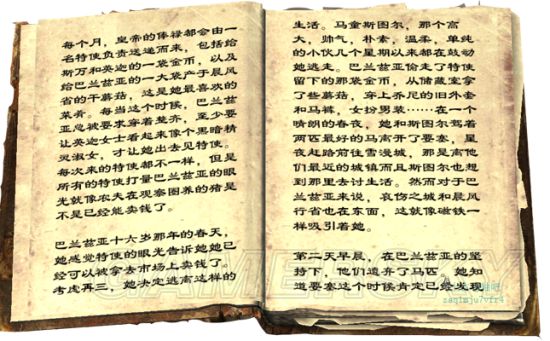 每个月，皇帝的俸禄都会由一
名特使负责送递而来，包括给
斯万和英迩的一袋金币，以及
给巴兰兹亚的一大袋产于晨风
省的干蘑菇，这是她最喜欢的
菜肴。每当这个时候，巴兰兹
亚总被要求穿着整齐，至少要
让英迩女士看起来像个黑暗精
灵淑女，才让她出去见特使。
每次来的特使都不一样，但是
所有的特使打量巴兰兹亚的眼
光就像农夫在观察圈养的猪是
不是已经能卖钱了。
巴兰兹亚十六岁那年的春天，
她感觉特使的眼光告诉她她已
经可以被拿去市场上卖钱了。
考虑再三，她决定逃离这样的
生活。马童斯图尔，那个高
大，帅气，朴素，温柔，单纯
的小伙几个星期以来都在鼓动
她逃走。巴兰兹亚偷走了特使
留下的那袋金币，从储藏室拿
了些蘑菇，穿上乔尼的旧外套
和马裤，女扮男装……在一个
晴朗的春夜，她和斯图尔驾着
两匹最好的马离开了要塞，星
夜赶路前往雪漫城，那是离他
们最近的城镇而且斯图尔也想
到那里去讨生活。然而对于巴
兰兹亚来说，哀伤之城和晨风
行省也在东面，这就像磁铁一
样吸引着她。
第二天早晨，在巴兰兹亚的坚
持下，他们遗弃了马匹，她知
道要塞这个时候肯定已经发现
GAMERSKY
zaq1mju7vfr4